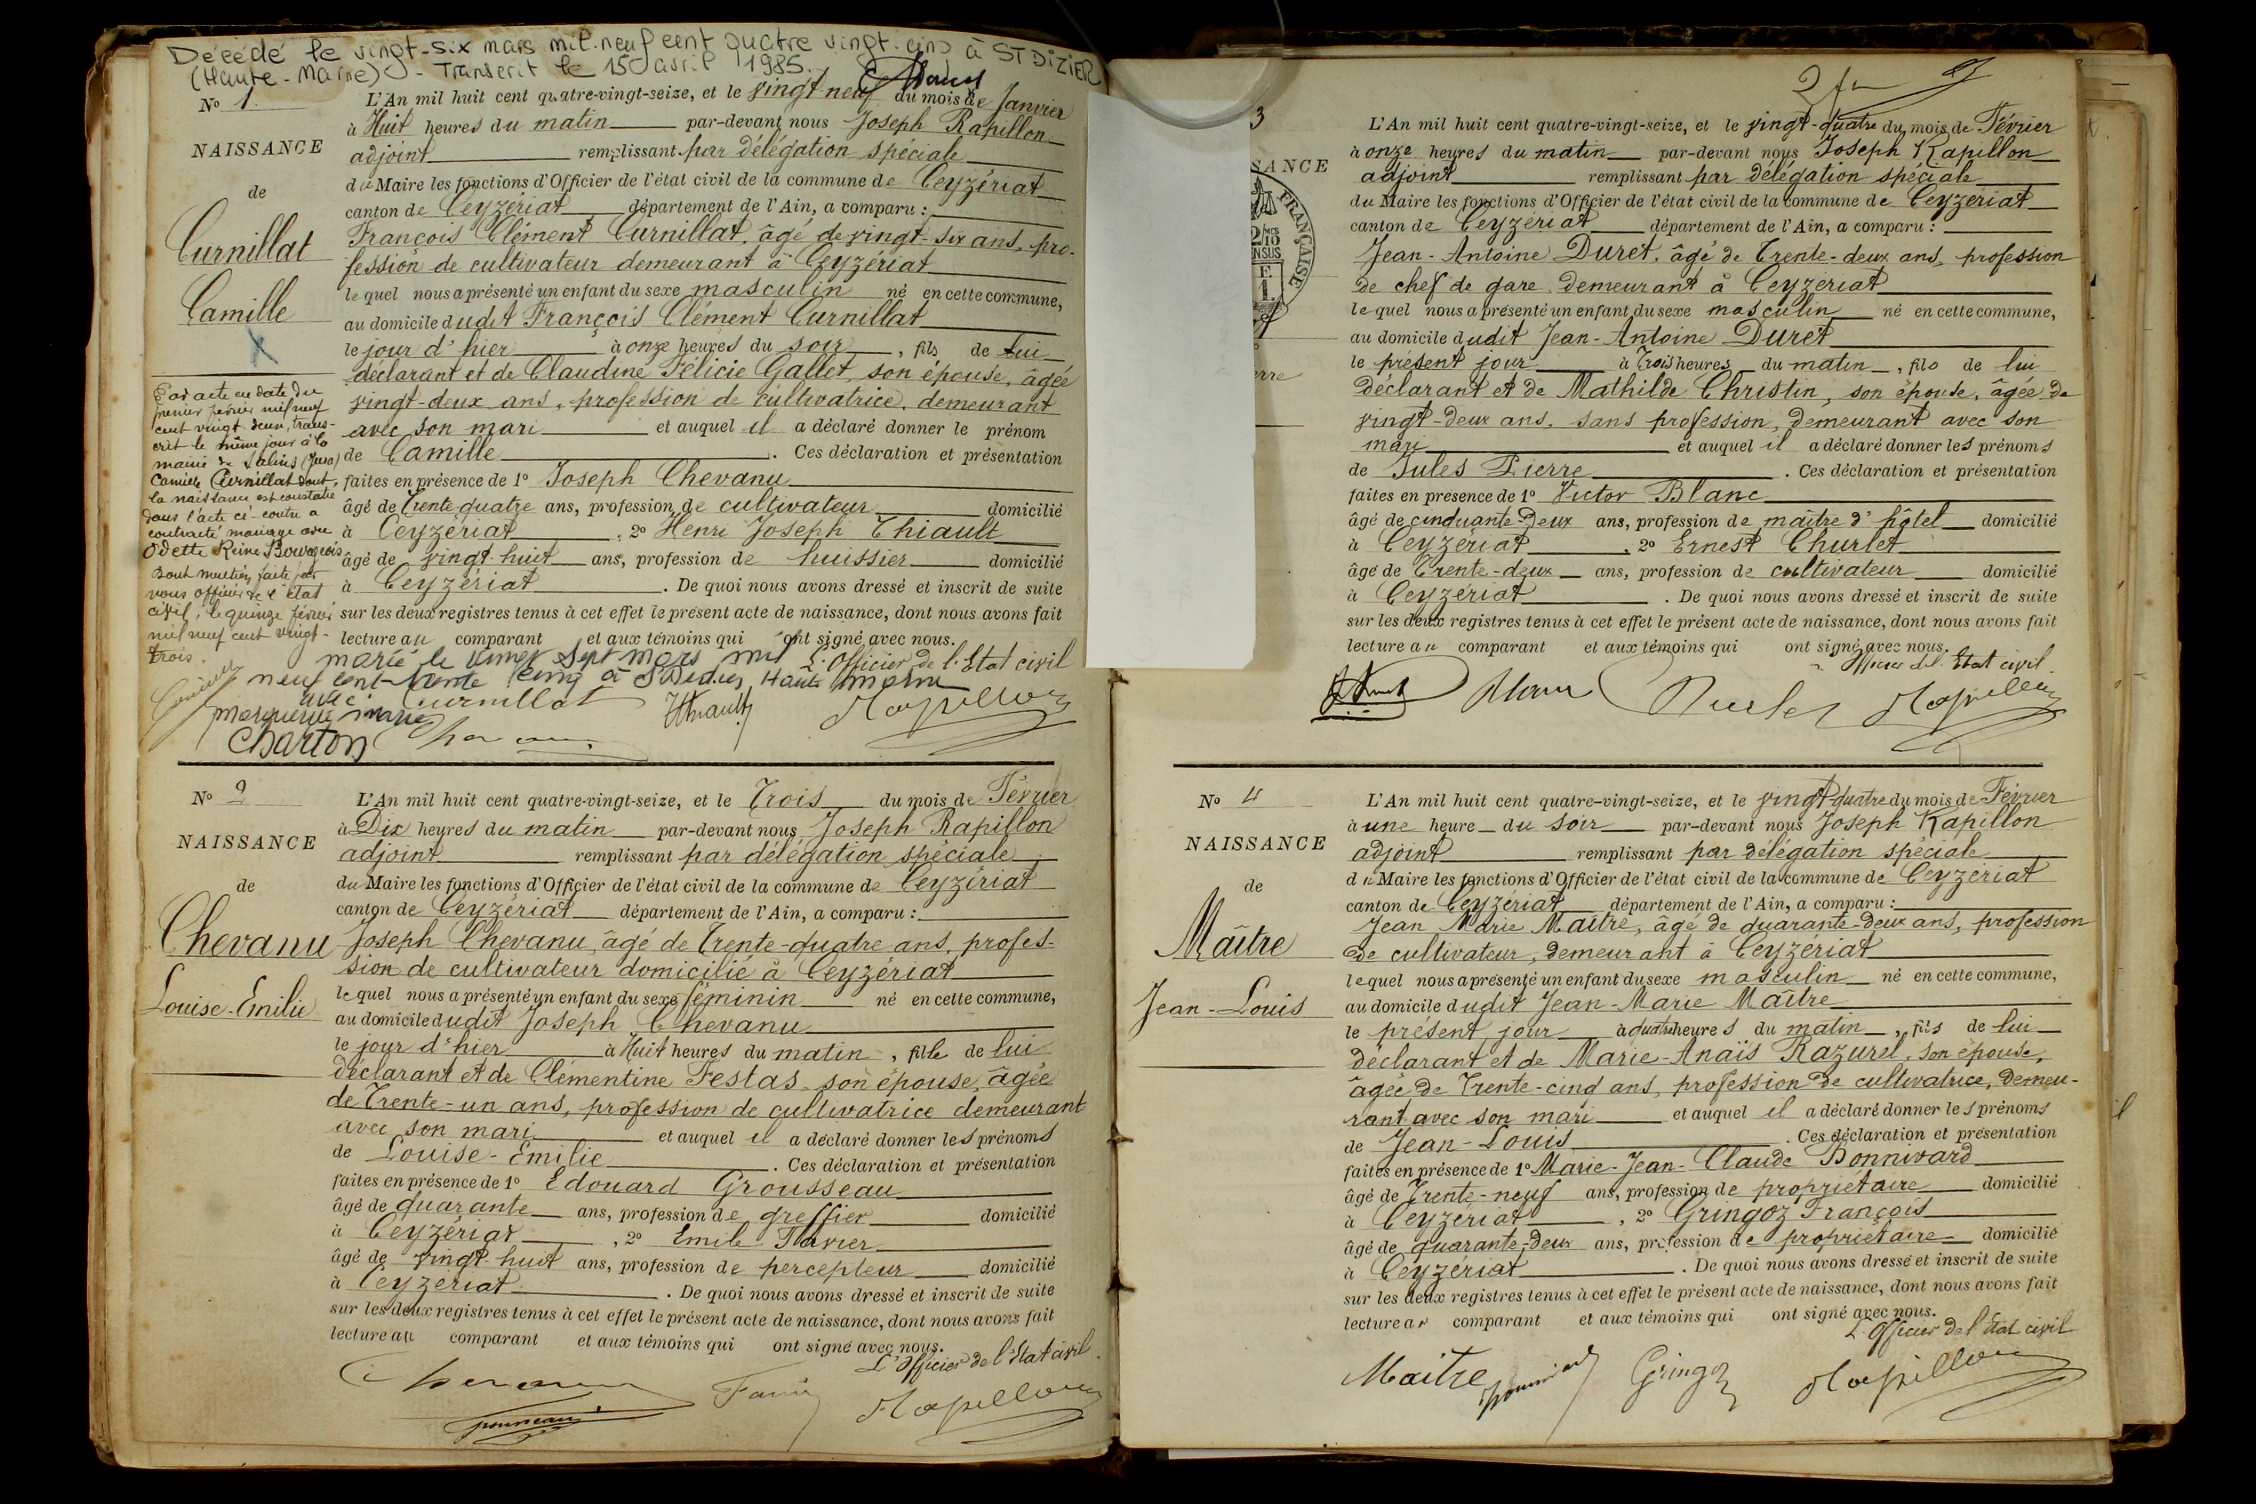 Décédé le vingt-six mars mil neuf cent quatre vingt-cinq à ST DIZIER
(Haute-Marne) - Transcrit le 15 avril 1985.
No 1.
NAISSANCE
de
Curnillat
Camille
L'An mil huit cent quatre-vingt-seize, et le vingt-neuf du mois de Janvier
à Huit heures du matin par-devant nous Joseph Rapillon
adjoint remplissant par délégation spéciale
du Maire les fonctions d'Officier de l'état civil de la commune de Ceyzériat
canton de Ceyzériat département de l'Ain, a comparu :
François Clément Curnillat, âgé de vingt-six ans, pro-
fession de cultivateur demeurant à Ceyzériat
lequel nous a présenté un enfant du sexe masculin né en cette commune,
au domicile dudit François Clément Curnillat
le jour d'hier à onze heures du soir, fils de lui
déclarant et de Claudine Félicie Gallet, son épouse, âgée
vingt-deux ans, profession de cultivatrice, demeurant
avec son mari et auquel il a déclaré donner le prénom
de Camille. Ces déclaration et présentation
faites en présence de 1o Joseph Chevanu
âgé de Trente quatre ans, profession de cultivateur domicilié
à Ceyzériat, 2o Henri Joseph Thiault
âgé de vingt-huit ans, profession de huissier domicilié
à Ceyzériat. De quoi nous avons dressé et inscrit de suite
sur les deux registres tenus à cet effet le présent acte de naissance, dont nous avons fait
lecture au comparant et aux témoins qui ont signé avec nous.
L'Officier de l'Etat civil
Par acte en date du
premier février mil neuf
cent vingt deux, trans-
crit le même jour à la
mairie de Salins (Jura)
Camille Curnillat dont
la naissance est constatée
dans l'acte ci-contre a
contracté mariage avec
Odette Reine Bourgeois
Dont mention faite par
nous officier de l'état
civil, le quinze février
mil neuf cent vingt-
trois.
marié le vingt sept mars mil
neuf cent trente cinq à St Dizier Haute Marne
avec
Marguerite Marie
Charton
Curnillat
HThiault
Rapillon
Chevanu
No 2
NAISSANCE
de
Chevanu
Louise-Emilie
L'An mil huit cent quatre-vingt-seize, et le Trois du mois de Février
à Dix heures du matin par-devant nous Joseph Rapillon
adjoint remplissant par délégation spéciale
du Maire les fonctions d'Officier de l'état civil de la commune de Ceyzériat
canton de Ceyzériat département de l'Ain, a comparu :
Joseph Chevanu, âgé de Trente-quatre ans, profes-
sion de cultivateur domicilié à Ceyzériat
lequel nous a présenté un enfant du sexe féminin né en cette commune,
au domicile dudit Joseph Chevanu
le jour d'hier à Huit heures du matin, fille de lui
déclarant et de Clémentine Festas son épouse, âgée
de Trente-un ans, profession de cultivatrice demeurant
avec son mari et auquel il a déclaré donner les prénoms
de Louise-Emilie. Ces déclaration et présentation
faites en présence de 1o Edouard Grousseau
âgé de quarante ans, profession de greffier domicilié
à Ceyzériat, 2o Emile Favier
âgé de vingt-huit ans, profession de percepteur domicilié
à Ceyzériat. De quoi nous avons dressé et inscrit de suite
sur les deux registres tenus à cet effet le présent acte de naissance, dont nous avons fait
lecture au comparant et aux témoins qui ont signé avec nous.
L'Officier de l'Etat civil.
Chevanu
Favier
Rapillon
3
SANCE
FRANÇAISE
L'An mil huit cent quatre-vingt-seize, et le vingt-quatre du mois de Février
à onze heures du matin par-devant nous Joseph Rapillon
adjoint remplissant par délégation spéciale
du Maire les fonctions d'Officier de l'état civil de la commune de Ceyzériat
canton de Ceyzériat département de l'Ain, a comparu :
Jean-Antoine Duret, âgé de Trente-deux ans, profession
de chef de gare, demeurant à Ceyzériat
lequel nous a présenté un enfant du sexe masculin né en cette commune,
au domicile dudit Jean-Antoine Duret
le présent jour à Trois heures du matin, fils de lui
déclarant et de Mathilde Christin, son épouse, âgée de
vingt-deux ans, sans profession, demeurant avec son
mari et auquel il a déclaré donner les prénoms
de Jules Pierre. Ces déclaration et présentation
faites en présence de 1o Victor Blanc
âgé de cinquante-deux ans, profession de maître d'hôtel domicilié
à Ceyzériat, 2o Ernest Churlet
âgé de Trente-deux ans, profession de cultivateur domicilié
à Ceyzériat. De quoi nous avons dressé et inscrit de suite
sur les deux registres tenus à cet effet le présent acte de naissance, dont nous avons fait
lecture au comparant et aux témoins qui ont signé avec nous.
Officier de l'Etat civil
Blanc
Rapillon
No 4
NAISSANCE
de
Maître
Jean-Louis
L'An mil huit cent quatre-vingt-seize, et le vingt-quatre du mois de Février
à une heure du soir par-devant nous Joseph Rapillon
adjoint remplissant par délégation spéciale
du Maire les fonctions d'Officier de l'état civil de la commune de Ceyzériat
canton de Ceyzériat département de l'Ain, a comparu :
Jean Marie Maître, âgé de quarante-deux ans, profession
de cultivateur, demeurant à Ceyzériat
lequel nous a présenté un enfant du sexe masculin né en cette commune,
au domicile dudit Jean-Marie Maître
le présent jour à quatre heures du matin, fils de lui
déclarant et de Marie-Anaïs Razurel, son épouse,
âgée de Trente-cinq ans, profession de cultivatrice, demeu-
rant avec son mari et auquel il a déclaré donner les prénoms
de Jean-Louis. Ces déclaration et présentation
faites en présence de 1o Marie-Jean-Claude Bonnivard
âgé de Trente-neuf ans, profession de propriétaire domicilié
à Ceyzériat, 2o Gringoz François
âgé de quarante-deux ans, profession de propriétaire domicilié
à Ceyzériat. De quoi nous avons dressé et inscrit de suite
sur les deux registres tenus à cet effet le présent acte de naissance, dont nous avons fait
lecture au comparant et aux témoins qui ont signé avec nous.
L'Officier de l'Etat civil
Maitre
Gringoz
Rapillon